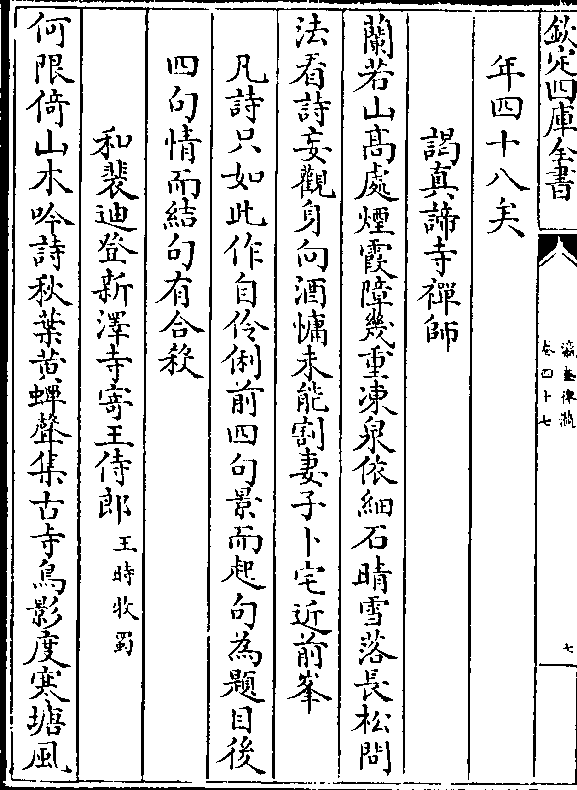 欽定四庫全書
瀛奎律髓
卷四十七
七
年四十八矣
謁真諦寺禪師
蘭若山髙處煙霞障幾重凍泉依細石晴雪落長松問
法看詩妄觀身向酒慵未能割妻子卜宅近前峯
凡詩只如此作自伶俐前四句景而起句為題目後
四句情而結句有合殺
和裴迪登新澤寺寄王侍郎王時牧蜀
何限倚山木吟詩秋葉黄蟬聲集古寺鳥影度寒塘風